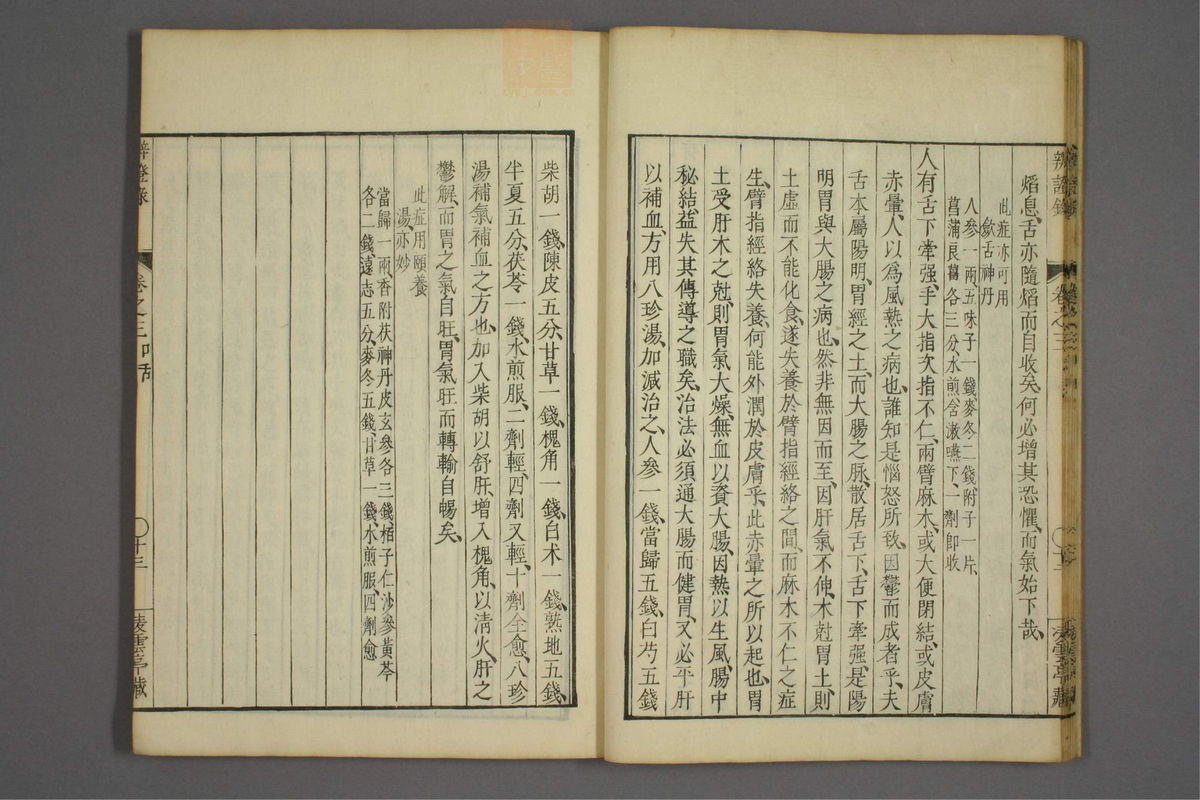 辨證錄 卷之三
熖息、舌亦隨熖而自收矣、何必增其恐懼、而氣始下哉、
此症亦可用
斂舌神丹
人參一兩、五味子一錢、麥冬二錢、附子一片、
菖蒲良薑各三分、水煎含漱嚥下、一劑卽收
人有舌下牽强、手大指次指不仁、兩臂麻木、或大便閉結、或皮膚
赤暈、人以爲風熱之病也、誰知是惱怒所致、因鬱而成者乎、夫
舌本屬陽明、胃經之土、而大腸之脉、散居舌下、舌下牽强、是陽
明胃與大腸之病也、然非無因而至、因肝氣不伸、木尅胃土、則
土虛而不能化食、遂失養於臂指經絡之間、而麻木不仁之症
生、臂指經絡失養、何能外潤於皮膚乎、此赤暈之所以起也、胃
土受肝木之尅、則胃氣大燥、無血以資大腸、因熱以生風、腸中
秘結、益失其傳導之職矣、治法必須通大腸而健胃、又必平肝
以補血、方用八珍湯、加減治之、人參一錢、當歸五錢、白芍五錢
柴胡一錢、陳皮五分、甘草一錢、槐角一錢、白术一錢、熟地五錢、
半夏五分、茯苓一錢、水煎服、二劑輕、四劑又輕、十劑全愈、八珍
湯補氣補血之方也、加入柴胡以舒肝、增入槐角、以清火、肝之
鬱解、而胃之氣自旺、胃氣旺而轉輸自暢矣、
此症用頤養
湯、亦妙
當歸一兩、香附茯神丹皮玄參各三錢、柏子仁沙參黃芩
各二錢、遠志五分、麥冬五錢、甘草一錢、水煎服、四劑愈
辨證錄 卷之三 口舌 十三 凌雲亭藏